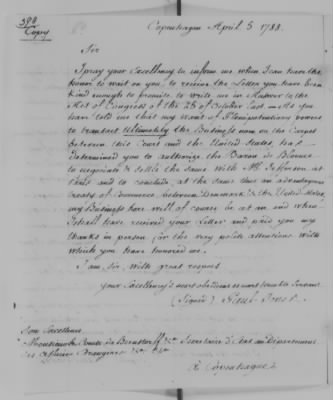 398
Copy
Copenhagen April 5 1788.
Sir
I pray your Excellency to inform me when I can have the
honor to wait on you, to receive the Letter you have been
kind enough to promise to write me in Answer to the
Act of Congress of the 25 of October last. As you
have told me that my want of Plenipotentiary powers
to transact Ultimately the Business now on the Carpet
between this Court and the United States, has
determined you to authorize the Baron de Blome
to negociate & settle the same with Mr. Jefferson at
Paris and to conclude at the same time an advantageous
treaty of Commerce between Denmark & the United States,
my Business here will of course be at an end when
I shall have received your Letter and paid you my
thanks in person for the very polite attentions with
which you have honored me.
I am, Sir, with great respect
Your Excellency's most obedient & most humble Servant
(Signed) Paul Jones.
Son Excellence
Monsieur le Comte de Bernstorff &c Secretaire d'Etat au Département
des Affaires Etrangères &c &c
à Copenhague